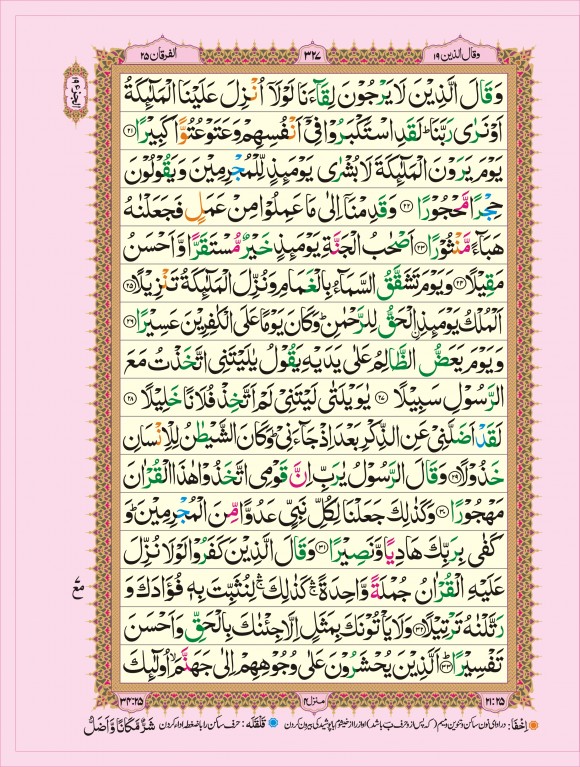 وقال الذین ۱۹
۳۲۷
الفرقان ۲۵
وَقَالَ الَّذِيْنَ لَا يَرْجُوْنَ لِقَآءَنَا لَوْلَاۤ اُنْزِلَ عَلَيْنَا الْمَلٰٓئِكَةُ
اَوْ نَرٰى رَبَّنَا ؕ لَقَدِ اسْتَكْبَرُوْا فِيْۤ اَنْفُسِهِمْ وَعَتَوْ عُتُوًّا كَبِيْرًا ۲۱
يَوْمَ يَرَوْنَ الْمَلٰٓئِكَةَ لَا بُشْرٰى يَوْمَئِذٍ لِّلْمُجْرِمِيْنَ وَيَقُوْلُوْنَ
حِجْرًا مَّحْجُوْرًا ۲۲ وَقَدِمْنَاۤ اِلٰى مَا عَمِلُوْا مِنْ عَمَلٍ فَجَعَلْنٰهُ
هَبَآءً مَّنْثُوْرًا ۲۳ اَصْحٰبُ الْجَنَّةِ يَوْمَئِذٍ خَيْرٌ مُّسْتَقَرًّا وَّاَحْسَنُ
مَقِيْلًا ۲۴ وَيَوْمَ تَشَقَّقُ السَّمَآءُ بِالْغَمَامِ وَنُزِّلَ الْمَلٰٓئِكَةُ تَنْزِيْلًا ۲۵
اَلْمُلْكُ يَوْمَئِذِ ۨالْحَقُّ لِلرَّحْمٰنِ ؕ وَكَانَ يَوْمًا عَلَى الْكٰفِرِيْنَ عَسِيْرًا ۲۶
وَيَوْمَ يَعَضُّ الظَّالِمُ عَلٰى يَدَيْهِ يَقُوْلُ يٰلَيْتَنِى اتَّخَذْتُ مَعَ
الرَّسُوْلِ سَبِيْلًا ۲۷ يٰوَيْلَتٰى لَيْتَنِيْ لَمْ اَتَّخِذْ فُلَانًا خَلِيْلًا ۲۸
لَقَدْ اَضَلَّنِيْ عَنِ الذِّكْرِ بَعْدَ اِذْ جَآءَنِيْ ؕ وَكَانَ الشَّيْطٰنُ لِلْاِنْسَانِ
خَذُوْلًا ۲۹ وَقَالَ الرَّسُوْلُ يٰرَبِّ اِنَّ قَوْمِى اتَّخَذُوْا هٰذَا الْقُرْاٰنَ
مَهْجُوْرًا ۳۰ وَكَذٰلِكَ جَعَلْنَا لِكُلِّ نَبِيٍّ عَدُوًّا مِّنَ الْمُجْرِمِيْنَ ؕ وَ
كَفٰى بِرَبِّكَ هَادِيًا وَّنَصِيْرًا ۳۱ وَقَالَ الَّذِيْنَ كَفَرُوْا لَوْلَا نُزِّلَ
عَلَيْهِ الْقُرْاٰنُ جُمْلَةً وَّاحِدَةً ۛۚ كَذٰلِكَ ۛۚ لِنُثَبِّتَ بِهٖ فُؤَادَكَ وَ
رَتَّلْنٰهُ تَرْتِيْلًا ۳۲ وَلَا يَاْتُوْنَكَ بِمَثَلٍ اِلَّا جِئْنٰكَ بِالْحَقِّ وَاَحْسَنَ
تَفْسِيْرًا ؕ ۳۳ اَلَّذِيْنَ يُحْشَرُوْنَ عَلٰى وُجُوْهِهِمْ اِلٰى جَهَنَّمَ ۙ اُولٰٓئِكَ
۲۱:۲۵
منزل ۴
۳۴:۲۵
شَرٌّ مَّكَانًا وَّاَضَلُّ